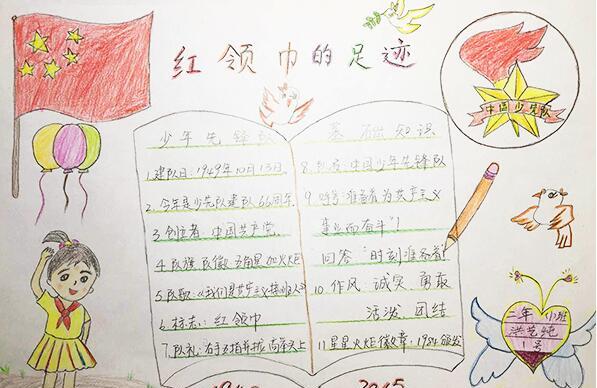 红领巾的足迹
中国少先队
少年先锋队
基础知识
1.建队日:1949年10月13日
2.今年是少先队建队66周年
3.创立者:中国共产党
4.队旗队徽:五角星加火炬
5.队歌:《我们是共产主义接班人》
6.标志:红领巾
7.队礼:右手五指并拢,高举头上
8.队名:中国少年先锋队
9.呼号:"准备着为共产主义
事业而奋斗"!
回答"时刻准备着"
10.作风:诚实 勇敢
活泼 团结
11.星星火炬徽章:1984颁发
1949
2015
二年(1)班
1号